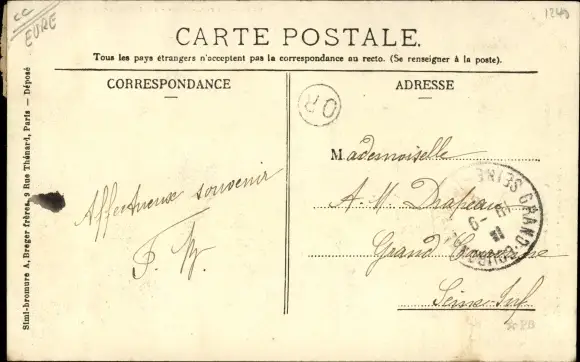 CC
EURE
1249
CARTE POSTALE.
Tous les pays étrangers n'acceptent pas la correspondance au recto. (Se renseigner à la poste).
CORRESPONDANCE
ADRESSE
Affectueux souvenir
OR
Mademoiselle
A. M. Drapeau
Grand
Seine-Inf
GRAND
SEINE
Simi-bromure A. Breger frères, 9 Rue Thénard, Paris — Déposé